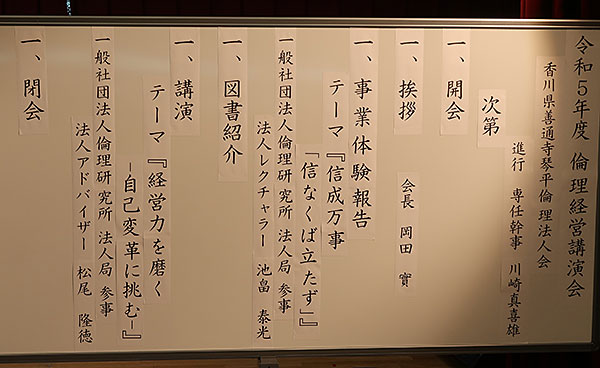 令和5年度 倫理経営講演会
香川県善通寺琴平倫理法人会
次第
進行 専任幹事 川崎真喜雄
一、開会
一、挨拶
会長 岡田 實
一、事業体験報告
テーマ『信成万事
「信なくば立たず」』
一般社団法人倫理研究所 法人局 参事
法人レクチャラー 池畠 泰光
一、図書紹介
一、講演
テーマ『経営力を磨く
－自己変革に挑む－』
一般社団法人倫理研究所 法人局 参事
法人アドバイザー 松尾 隆徳
一、閉会